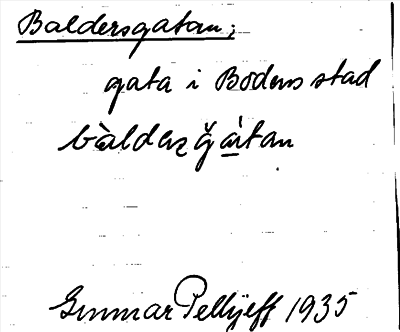 Baldersgatan;
gata i Bodens stad
bàldezg̀àtan
Gunnar Pellijeff 1935